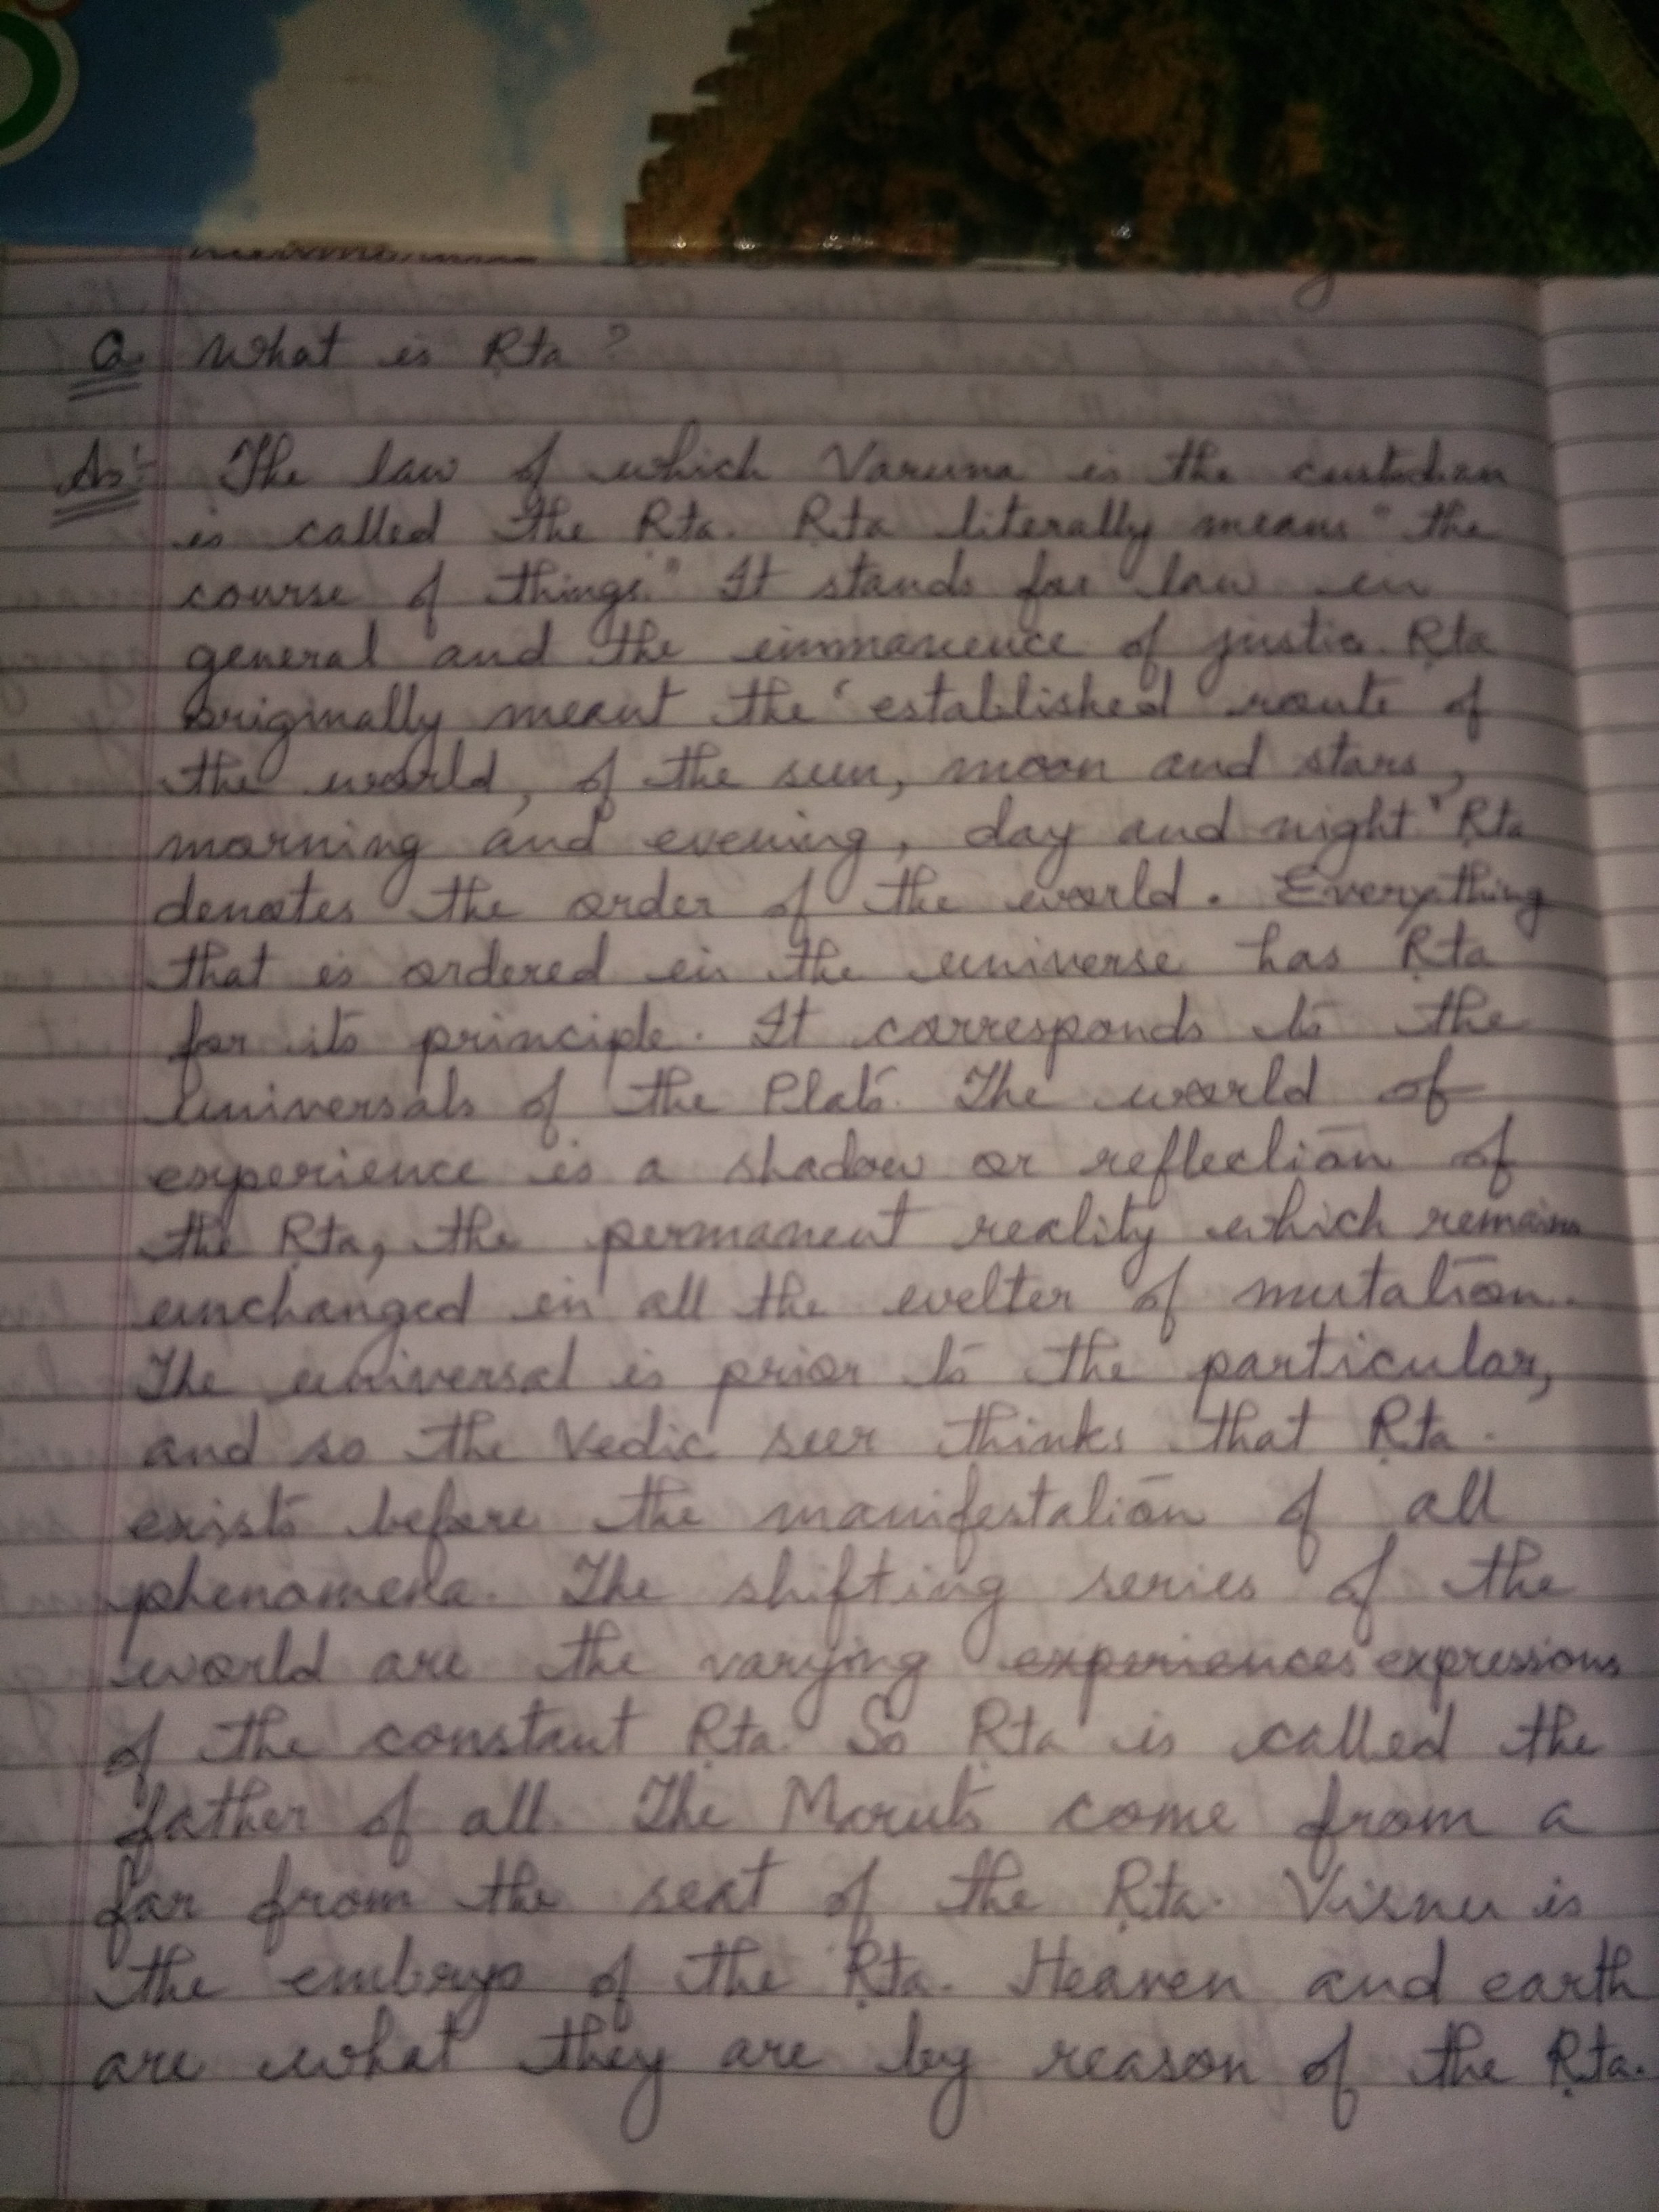 Q What is Ṛta ?
As:- The law of which Varuna is the custodian
is called the Ṛta. Ṛta literally means "the
course of things." It stands for law in
general and the immanence of justic. Ṛta
originally meant the 'established route of
the world, of the sun, moon and stars,
morning and evening, day and night' Ṛta
denotes the order of the world. Everything
that is ordered in the universe has Ṛta
for its principle. It corresponds to the
universals of the Plato. The world of
experience is a shadow or reflection of
the Ṛta, the permanent reality which remains
unchanged in all the welter of mutation.
The universal is prior to the particular,
and so the Vedic seer thinks that Ṛta
exists before the manifestation of all
phenomena. The shifting series of the
world are the varying experiences expressions
of the constant Ṛta. So Ṛta is called the
father of all. The Maruts come from a
far from the seat of the Ṛta. Visnu is
the embryo of the Ṛta. Heaven and earth
are what they are by reason of the Ṛta.